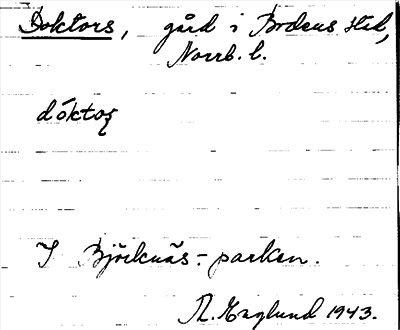 Doktors, gård i Bodens stad,
Norrb. l.
dóktoʂ
I Björknäs-parken.
R. Englund 1943.